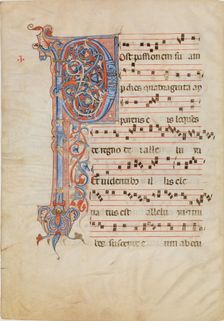 Post passionem su am
p dies quadraginta ap
parens e is loquens
de regno dei alle lu ya
Et videntibus il lis ele
uatus est allelu ya
bes suscepit e um ab ocu